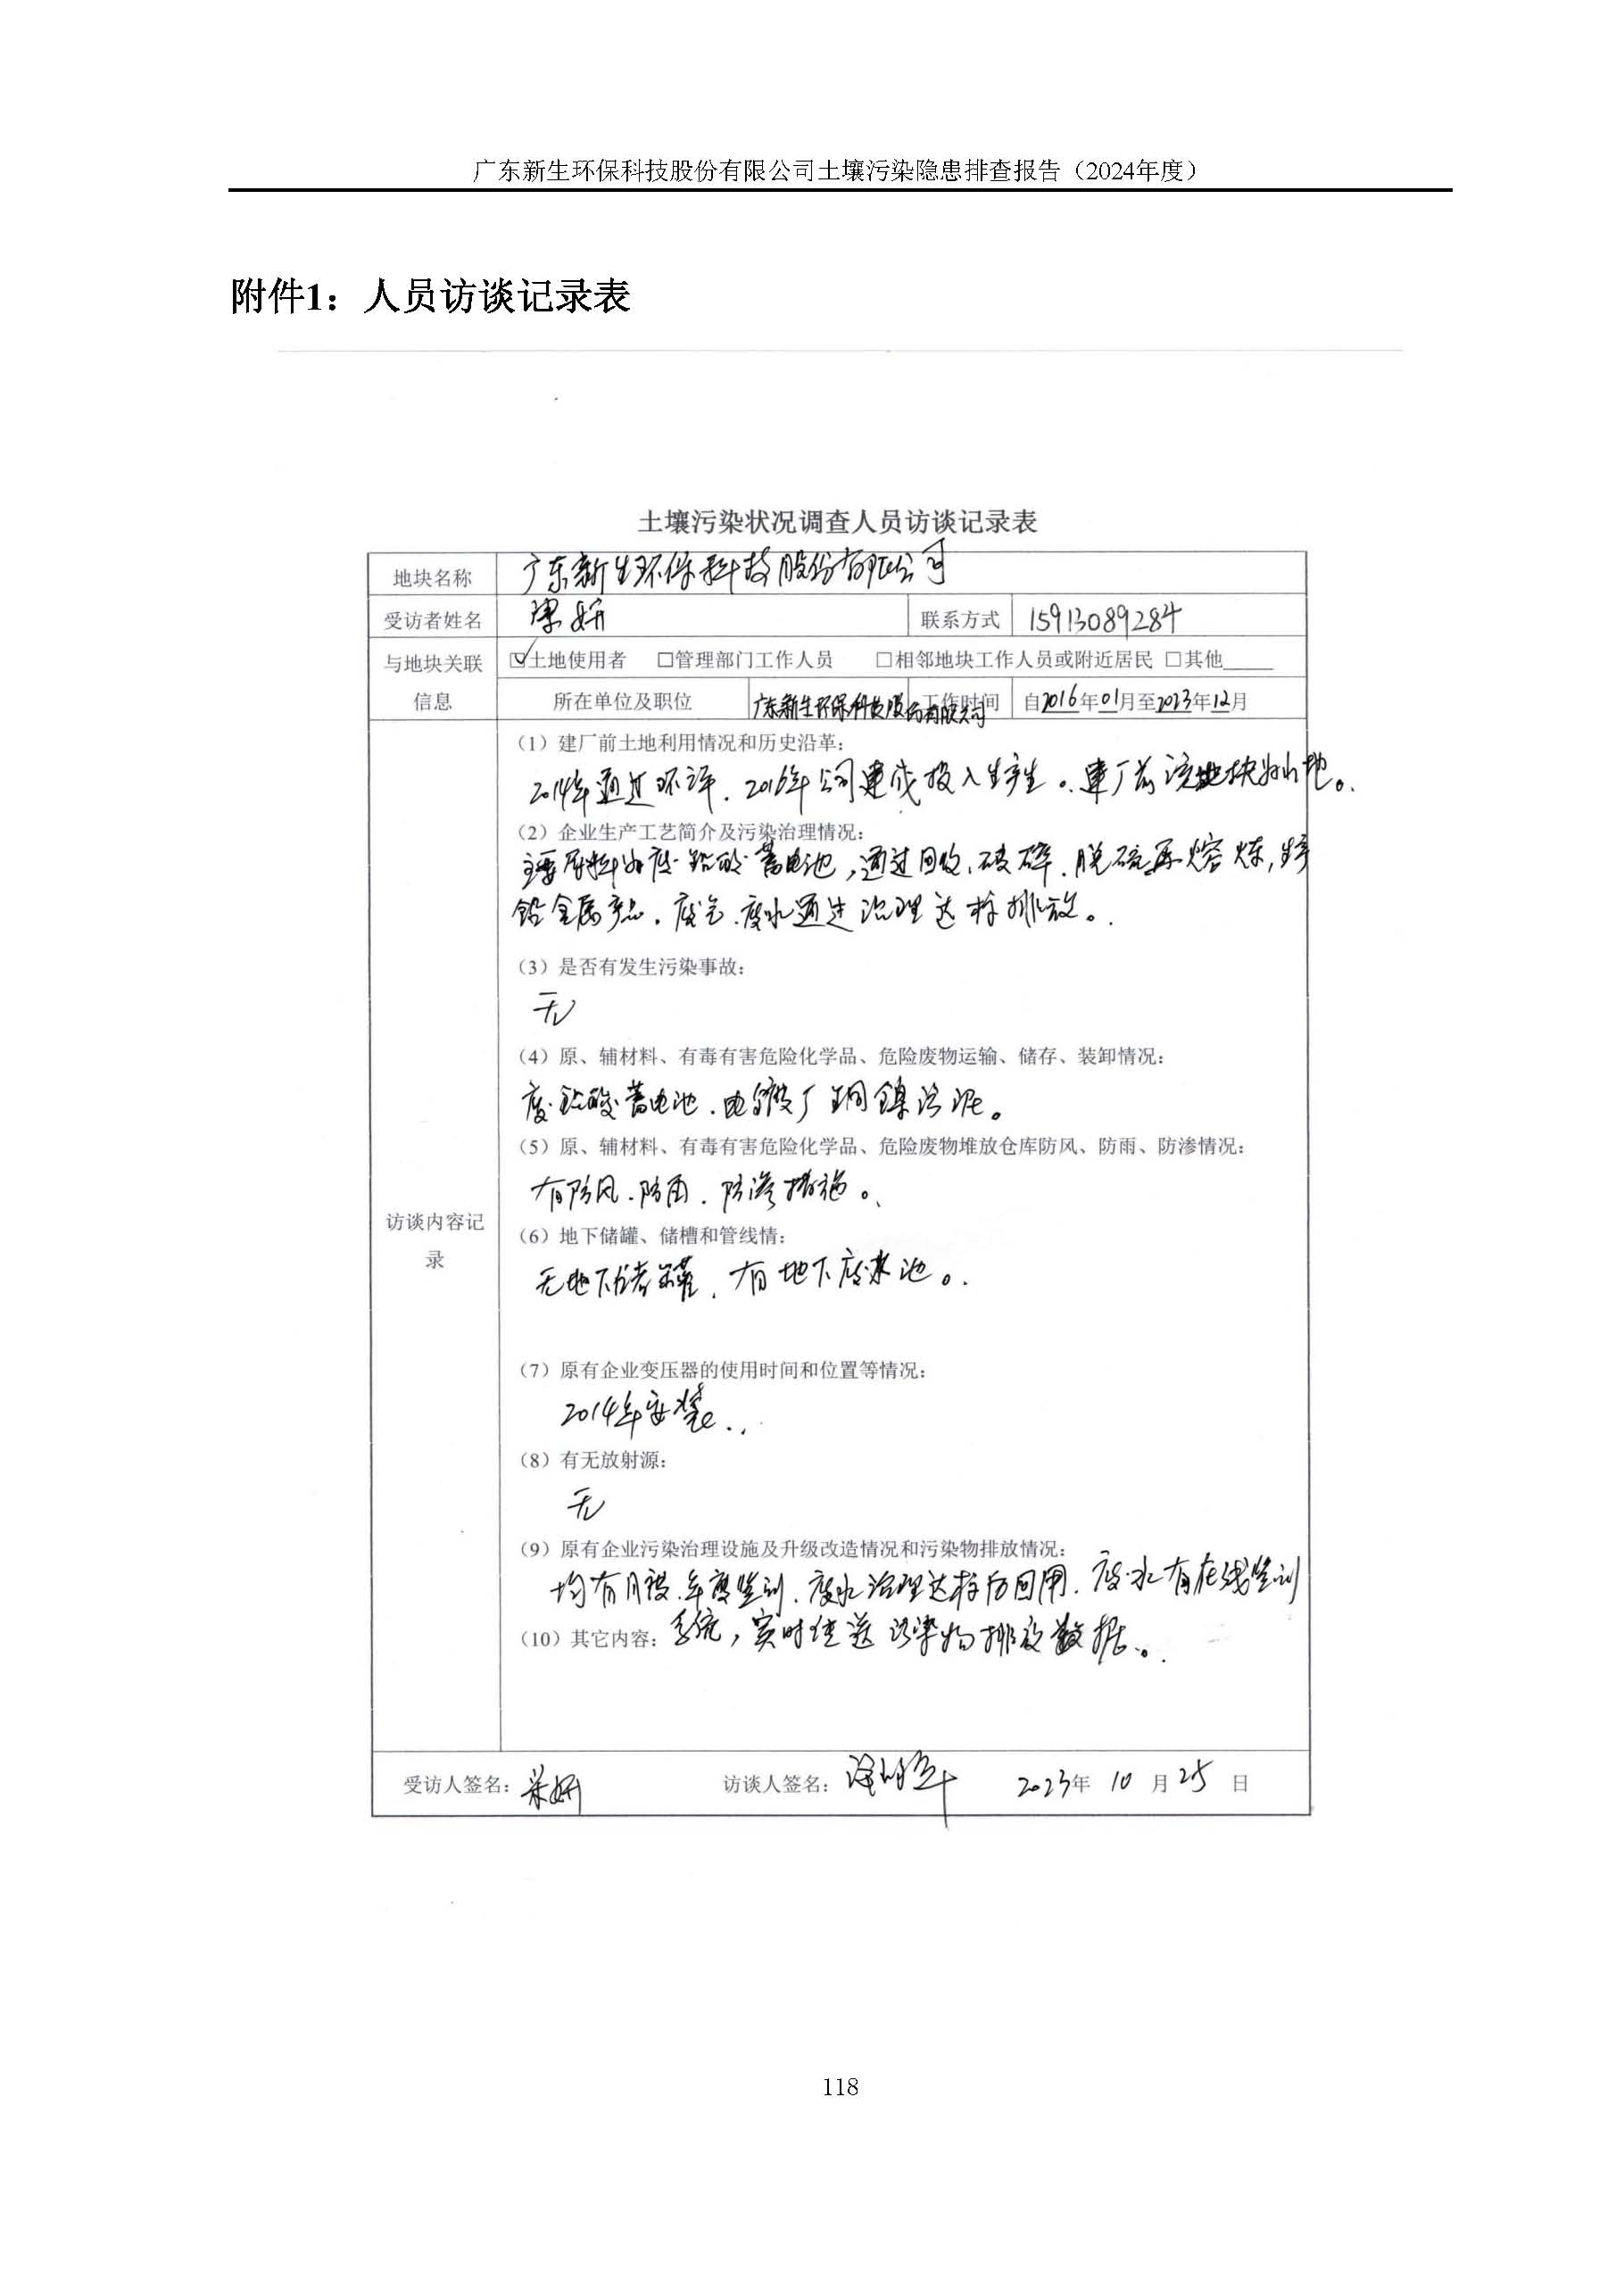 广东新生环保科技股份有限公司土壤污染隐患排查报告（2024年度）
附件1：人员访谈记录表
土壤污染状况调查人员访谈记录表
地块名称 广东新生环保科技股份有限公司
受访者姓名 妍 联系方式 15913089284
与地块关联信息 ☑土地使用者 □管理部门工作人员 □相邻地块工作人员或附近居民 □其他____
所在单位及职位 广东新生环保科技股份有限公司 工作时间 自2016年01月至2023年12月
访谈内容记录
（1）建厂前土地利用情况和历史沿革：
2014年通过环评，2016年公司建成投入生产。建厂前该地块为山地。
（2）企业生产工艺简介及污染治理情况：
主要原料为废铅酸蓄电池，通过回收、破碎、脱硫再熔炼，生产
铅金属产品。废气、废水通过治理达标排放。
（3）是否有发生污染事故：
无
（4）原、辅材料、有毒有害危险化学品、危险废物运输、储存、装卸情况：
废铅酸蓄电池、电镀厂铜镍污泥。
（5）原、辅材料、有毒有害危险化学品、危险废物堆放仓库防风、防雨、防渗情况：
有防风、防雨、防渗措施。
（6）地下储罐、储槽和管线情：
无地下储罐，有地下废水池。
（7）原有企业变压器的使用时间和位置等情况：
2014年安装.
（8）有无放射源：
无
（9）原有企业污染治理设施及升级改造情况和污染物排放情况：
均有月度、年度监测，废水治理达标后回用，废水有在线监测
系统，实时传送污染物排放数据。
（10）其它内容：
受访人签名： 妍 访谈人签名： 2023年 10 月 25 日
118